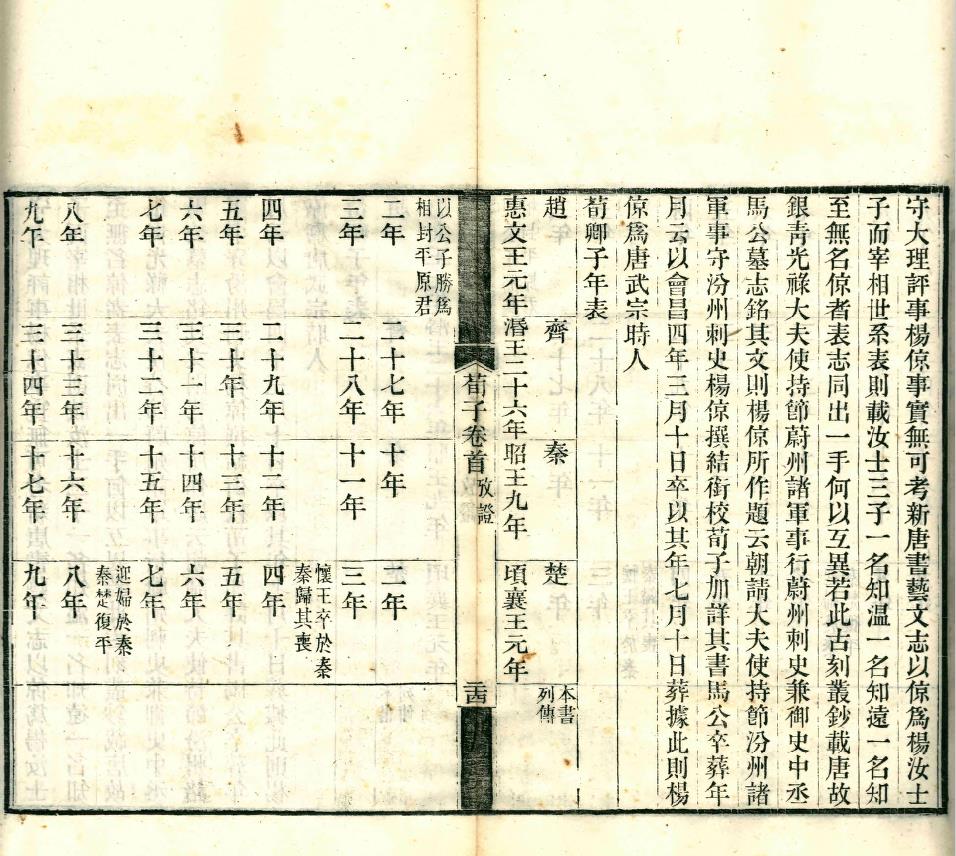 守大理評事楊倞事實無可考新唐書藝文志以倞爲楊汝士
子而宰相世系表則載汝士三子一名知温一名知遠一名知
至無名倞者表志同出一手何以互異若此古刻叢鈔載唐故
銀青光祿大夫使持節蔚州諸軍事行蔚州刺史兼御史中丞
馬公墓志銘其文則楊倞所作題云朝請大夫使持節汾州諸
軍事守汾州刺史楊倞撰結銜校荀子加詳其書馬公卒葬年
月云以會昌四年三月十日卒以其年七月十日葬據此則楊
倞爲唐武宗時人
荀卿子年表
趙 齊 秦 楚 本書列傳
惠文王元年 湣王二十六年 昭王九年 頃襄王元年
荀子卷首 攷證 二十四
二年 二十七年 十年 二年
以公子勝爲相封平原君
三年 二十八年 十一年 三年
懷王卒於秦秦歸其喪
四年 二十九年 十二年 四年
五年 三十年 十三年 五年
六年 三十一年 十四年 六年
七年 三十二年 十五年 七年
迎婦於秦秦楚復平
八年 三十三年 十六年 八年
九年 三十四年 十七年 九年